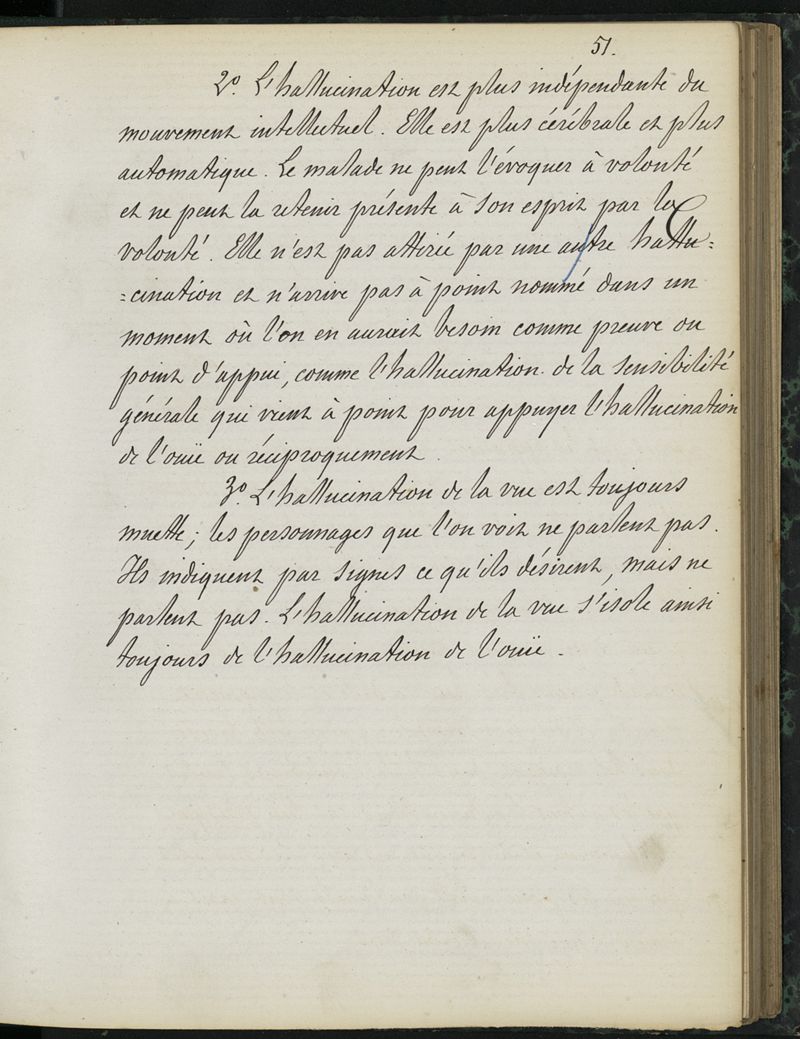 51.
2º. L'hallucination est plus indépendante du
mouvement intellectuel. Elle est plus cérébrale et plus
automatique. Le malade ne peut l'évoquer à volonté
et ne peut la retenir présente à son esprit par la
volonté. Elle n'est pas attirée par une autre hallu=
=cination et n'arrive pas à point nommé dans un
moment où l'on en aurait besoin comme preuve ou
point d'appui, comme l'hallucination de la sensibilité
générale qui vient à point pour appuyer l'hallucination
de l'ouïe ou réciproquement.
3º. L'hallucination de la vue est toujours
muette; les personnages que l'on voit ne parlent pas.
Ils indiquent par signes ce qu'ils désirent, mais ne
parlent pas. L'hallucination de la vue s'isole ainsi
toujours de l'hallucination de l'ouïe.